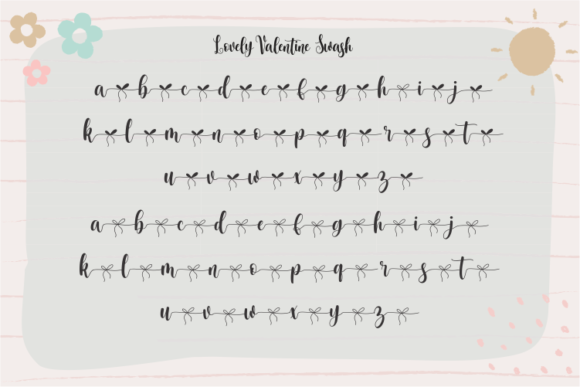 Lovely Valentine Swash
a b c d e f g h i j
k l m n o p q r s t
u v w x y z
a b c d e f g h i j
k l m n o p q r s t
u v w x y z